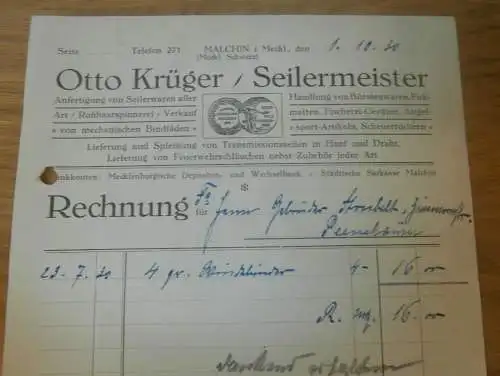 Seite Telefon 271 MALCHIN i Meckl., den 1. 10. 30
(Meckl. Schweiz)
Otto Krüger / Seilermeister
Anfertigung von Seilerwaren aller Handlung von Bürstenwaren, Fuß-
Art / Roßhaarspinnerei / Verkauf matten, Fischerei-Geräte, Angel-
von mechanischen Bindfäden sport-Artikeln, Scheuertüchern
Lieferung und Spleißung von Transmissionsseilen in Hanf und Draht.
Lieferung von Feuerwehrschläuchen nebst Zubehör jeder Art.
Bankkonten: Mecklenburgische Depositen- und Wechselbank / Städtische Sparkasse Malchin
Rechnung für Fa. Herrn Gebrüder
23. 7. 30 4 gr. 4- 16 00
R. M. 16. 00
Dankend erhalten